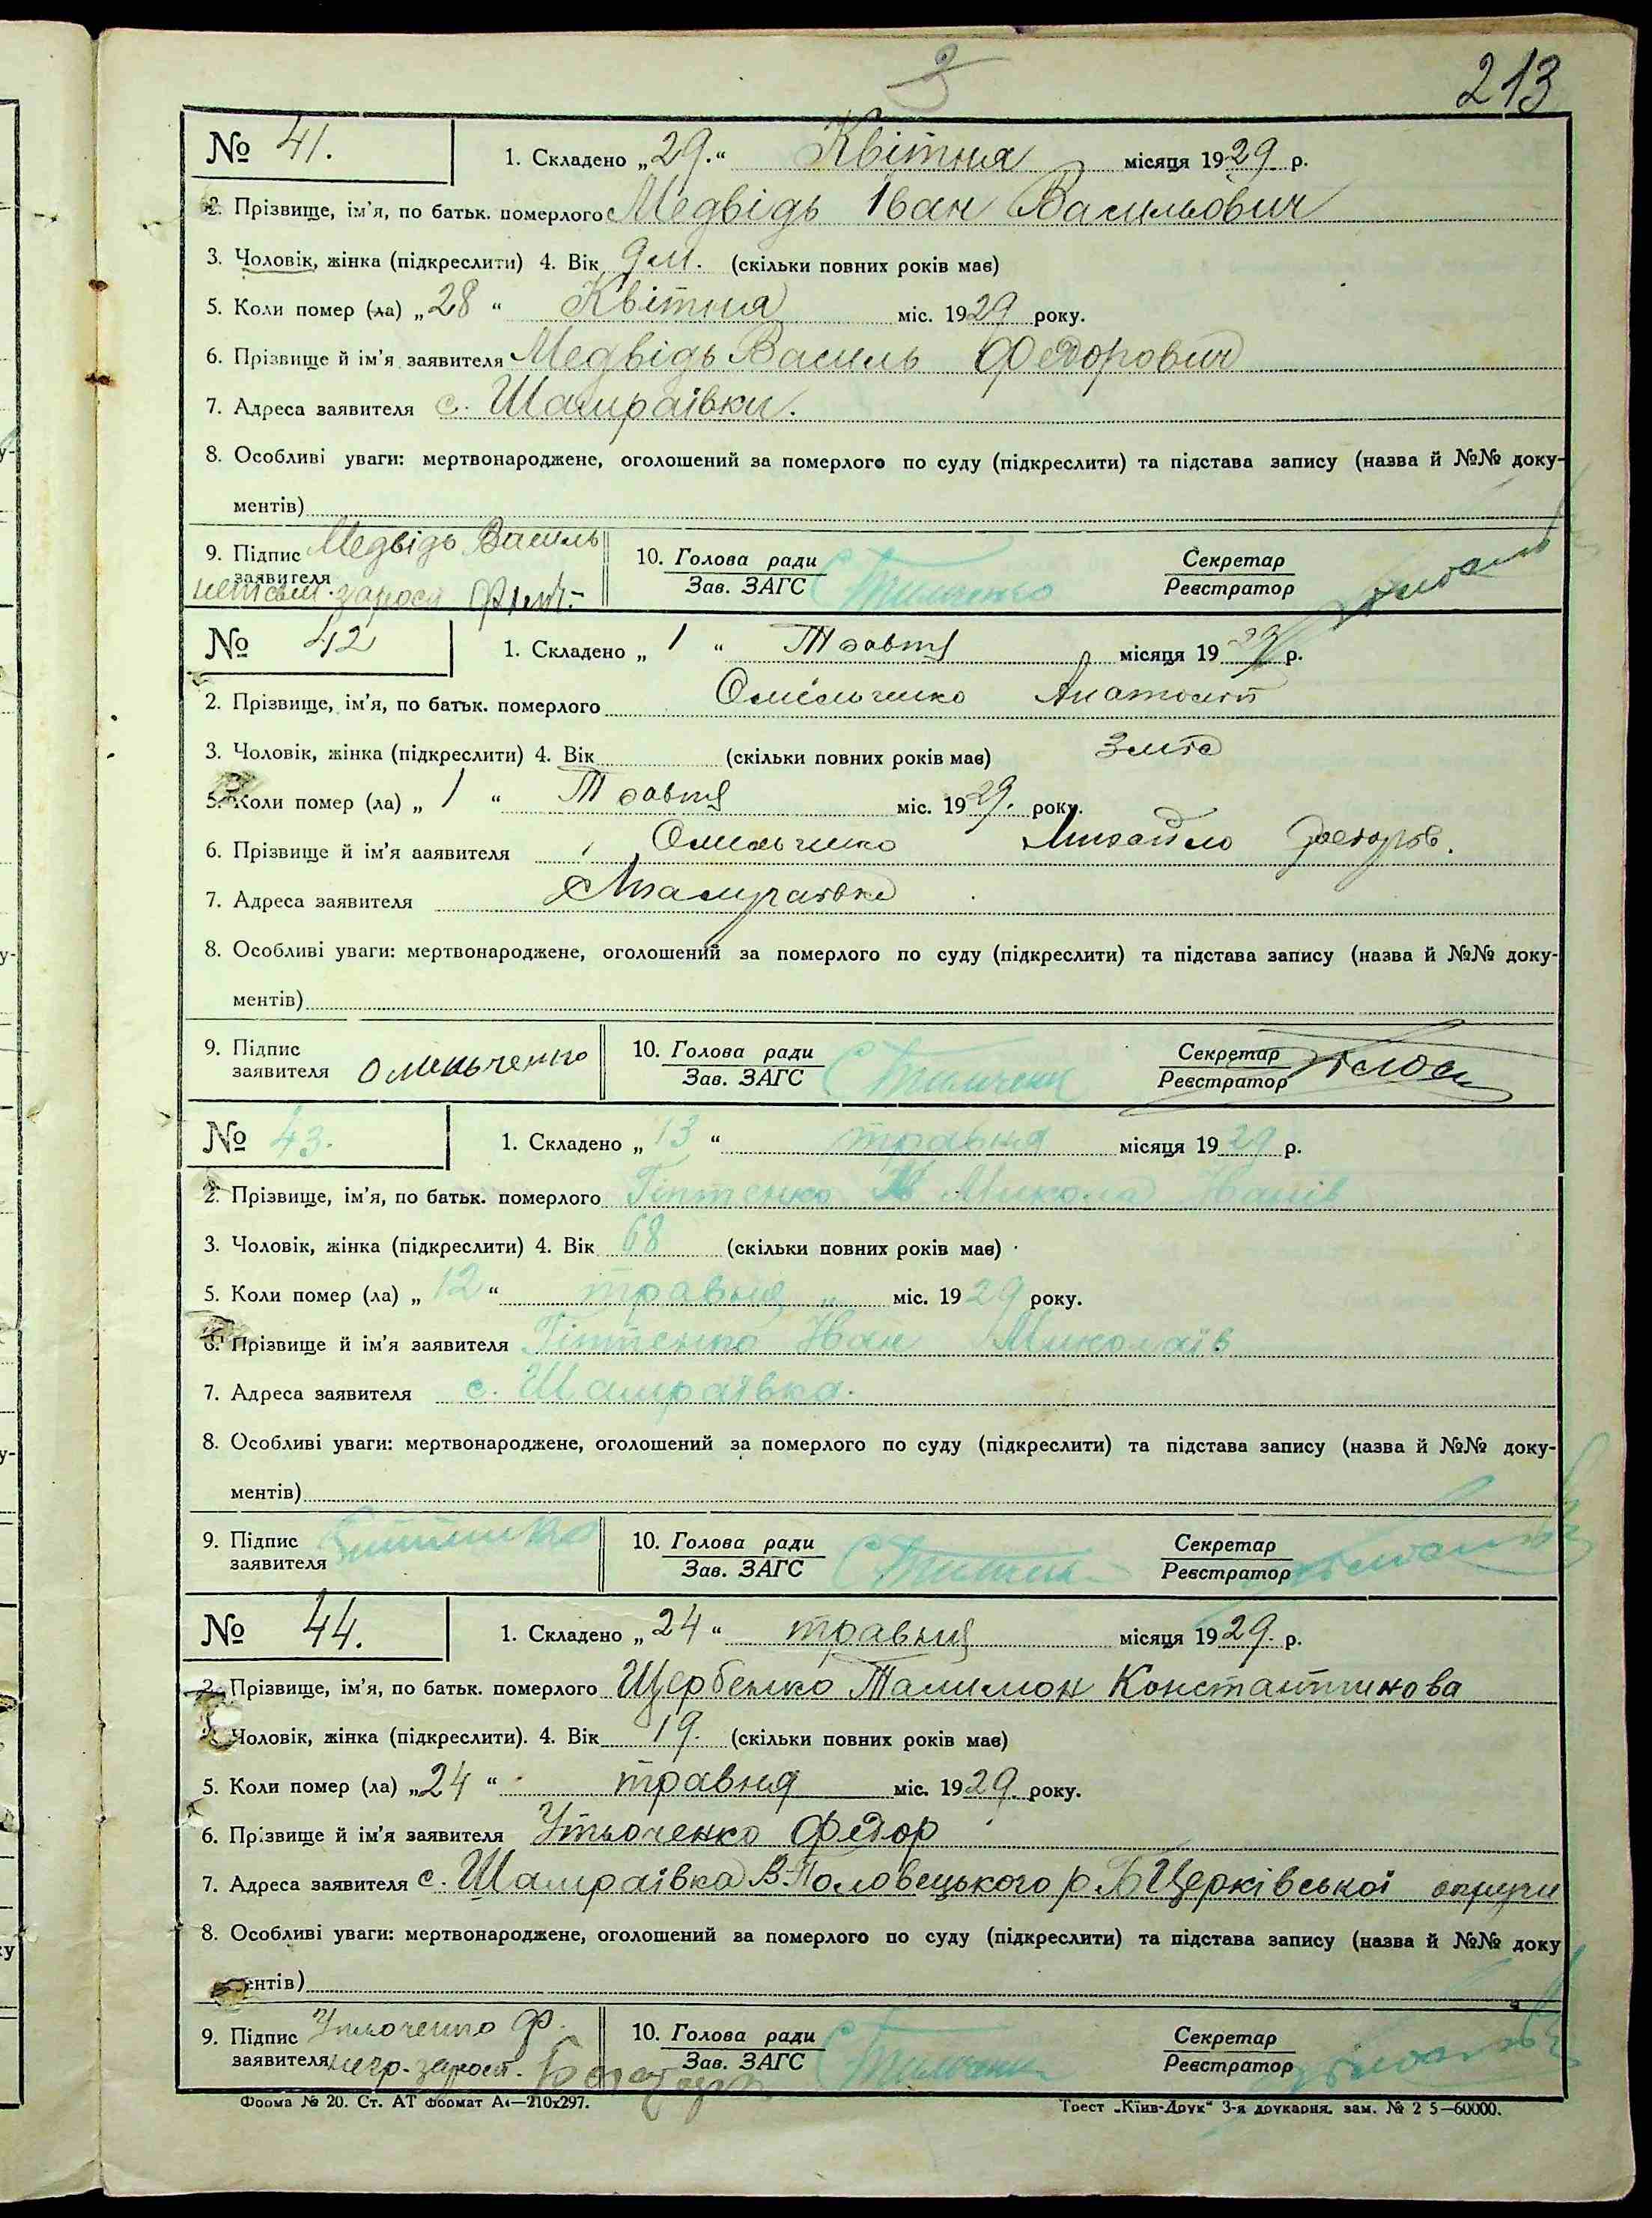 3
213
№ 41. 1. Складено „29.“ Квітня місяця 1929 р.
2. Прізвище, ім'я, по батьк. померлого Медвідь Іван Васильович
3. Чоловік, жінка (підкреслити) 4. Вік 9 м. (скільки повних років має)
5. Коли помер (ла) „28“ Квітня міс. 1929 року.
6. Прізвище й ім'я заявителя Медвідь Василь Федорович
7. Адреса заявителя с. Шамраївки.
8. Особливі уваги: мертвонароджене, оголошений за померлого по суду (підкреслити) та підстава запису (назва й №№ доку-
ментів)
9. Підпис Медвідь Василь 10. Голова ради Секретар
заявителя Зав. ЗАГС Реєстратор
№ 42 1. Складено „1“ Травня місяця 1929 р.
2. Прізвище, ім'я, по батьк. померлого Омельченко Анатолій
3. Чоловік, жінка (підкреслити) 4. Вік (скільки повних років має)
5. Коли помер (ла) „1“ Травня міс. 1929. року.
6. Прізвище й ім'я заявителя Омельченко Михайло
7. Адреса заявителя с Шамраївка
8. Особливі уваги: мертвонароджене, оголошений за померлого по суду (підкреслити) та підстава запису (назва й №№ доку-
ментів)
9. Підпис 10. Голова ради Секретар
заявителя Омельченко Зав. ЗАГС Реєстратор
№ 43. 1. Складено „13“ травня місяця 1929 р.
2. Прізвище, ім'я, по батьк. померлого Микола Іванів
3. Чоловік, жінка (підкреслити) 4. Вік 68 (скільки повних років має)
5. Коли помер (ла) „12“ травня міс. 1929 року.
6. Прізвище й ім'я заявителя Іван Миколаїв
7. Адреса заявителя с. Шамраївка.
8. Особливі уваги: мертвонароджене, оголошений за померлого по суду (підкреслити) та підстава запису (назва й №№ доку-
ментів)
9. Підпис 10. Голова ради Секретар
заявителя Зав. ЗАГС Реєстратор
№ 44. 1. Складено „24“ травня місяця 1929. р.
2. Прізвище, ім'я, по батьк. померлого Щербенко Талимон Константинова
Чоловік, жінка (підкреслити). 4. Вік 19. (скільки повних років має)
5. Коли помер (ла) „24“ травня міс. 1929. року.
6. Прізвище й ім'я заявителя Утьоченко Федор
7. Адреса заявителя с. Шамраївка В-Половецького р. Б Церківської округи
8. Особливі уваги: мертвонароджене, оголошений за померлого по суду (підкреслити) та підстава запису (назва й №№ доку
ентів)
9. Підпис Утьоченко Ф. 10. Голова ради Секретар
заявителя Зав. ЗАГС Реєстратор
Форма № 20. Ст. АТ формат А4—210х297. Трест „Київ-Друк“ 3-я друкарня. зам. № 2 5—60000.